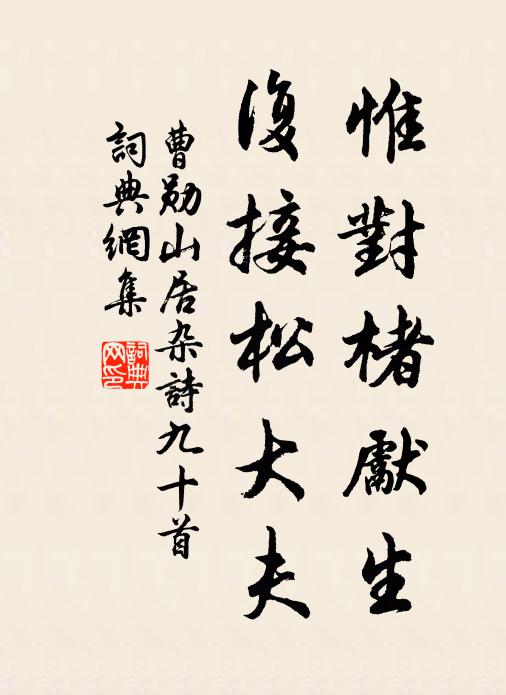 惟對楮獻生
復接松大夫
曹勛山居杂詩九十首
詞典網集
詞典
网印